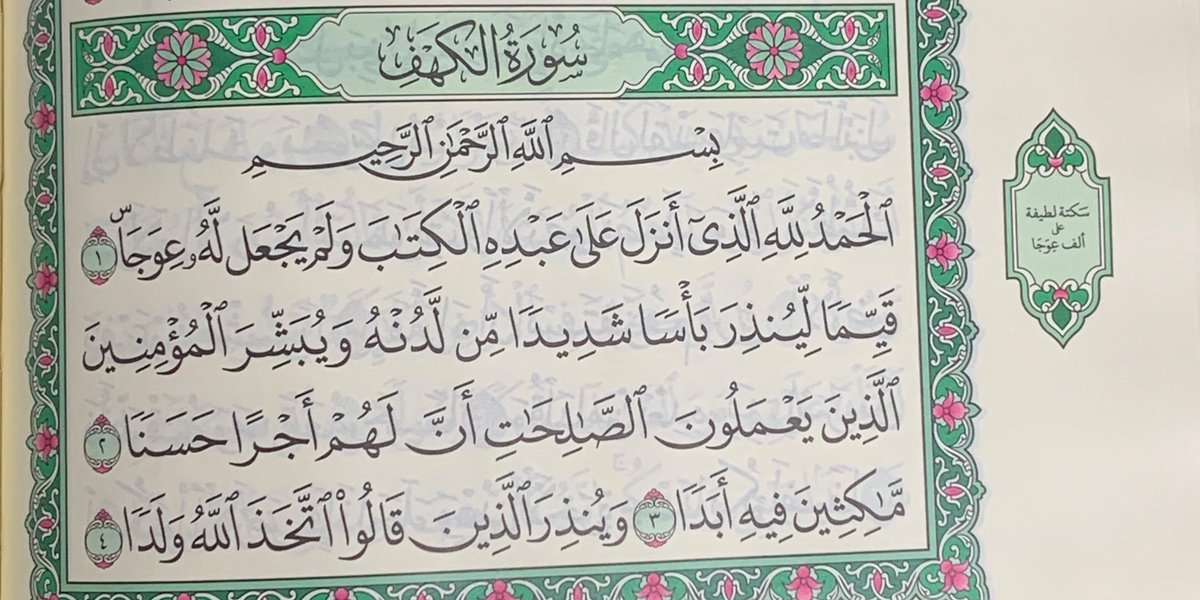 سُورَةُ الكَهۡفِ
بِسۡمِ ٱللَّهِ ٱلرَّحۡمَٰنِ ٱلرَّحِيمِ
ٱلۡحَمۡدُ لِلَّهِ ٱلَّذِيٓ أَنزَلَ عَلَىٰ عَبۡدِهِ ٱلۡكِتَٰبَ وَلَمۡ يَجۡعَل لَّهُۥ عِوَجَاۜ ١
قَيِّمٗا لِّيُنذِرَ بَأۡسٗا شَدِيدٗا مِّن لَّدُنۡهُ وَيُبَشِّرَ ٱلۡمُؤۡمِنِينَ
ٱلَّذِينَ يَعۡمَلُونَ ٱلصَّٰلِحَٰتِ أَنَّ لَهُمۡ أَجۡرًا حَسَنٗا ٢
مَّٰكِثِينَ فِيهِ أَبَدٗا ٣ وَيُنذِرَ ٱلَّذِينَ قَالُواْ ٱتَّخَذَ ٱللَّهُ وَلَدٗا ٤
سَكتة لطيفة
على
ألف عِوَجَا